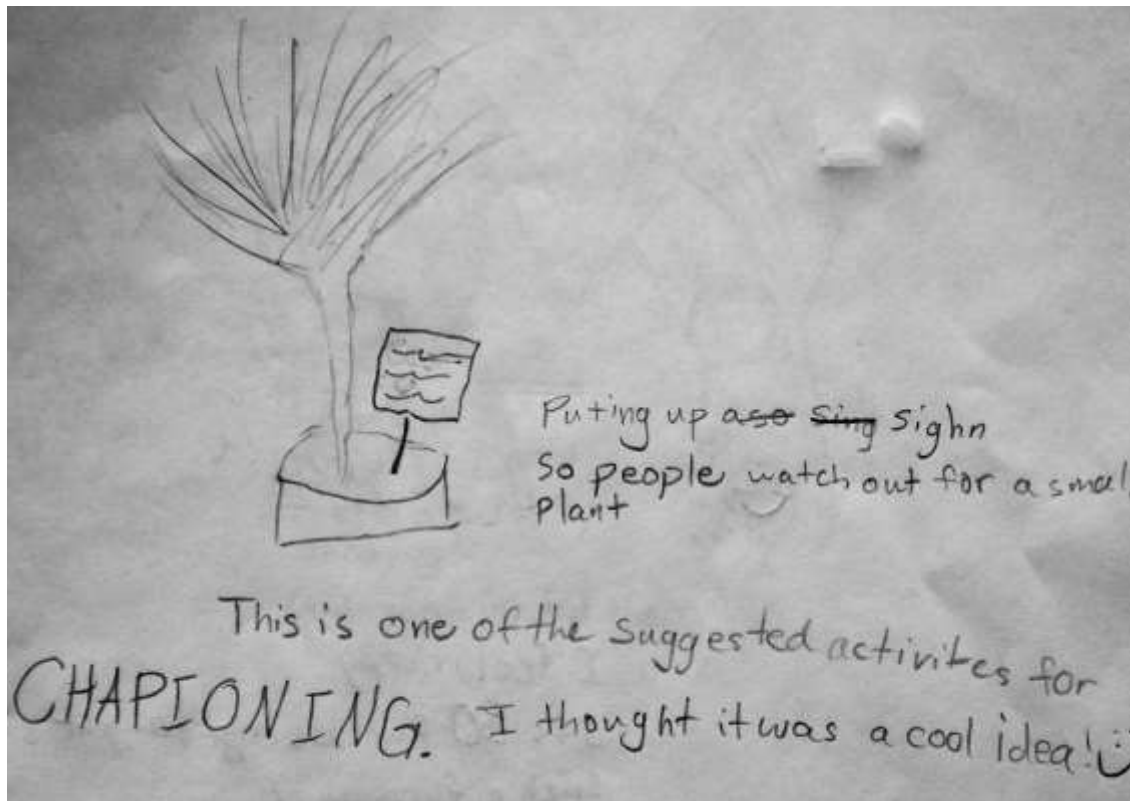 Puting up aso sing sighn
So people watch out for a small
Plant
This is one of the suggested activites for
CHAPIONING. I thought it was a cool idea!